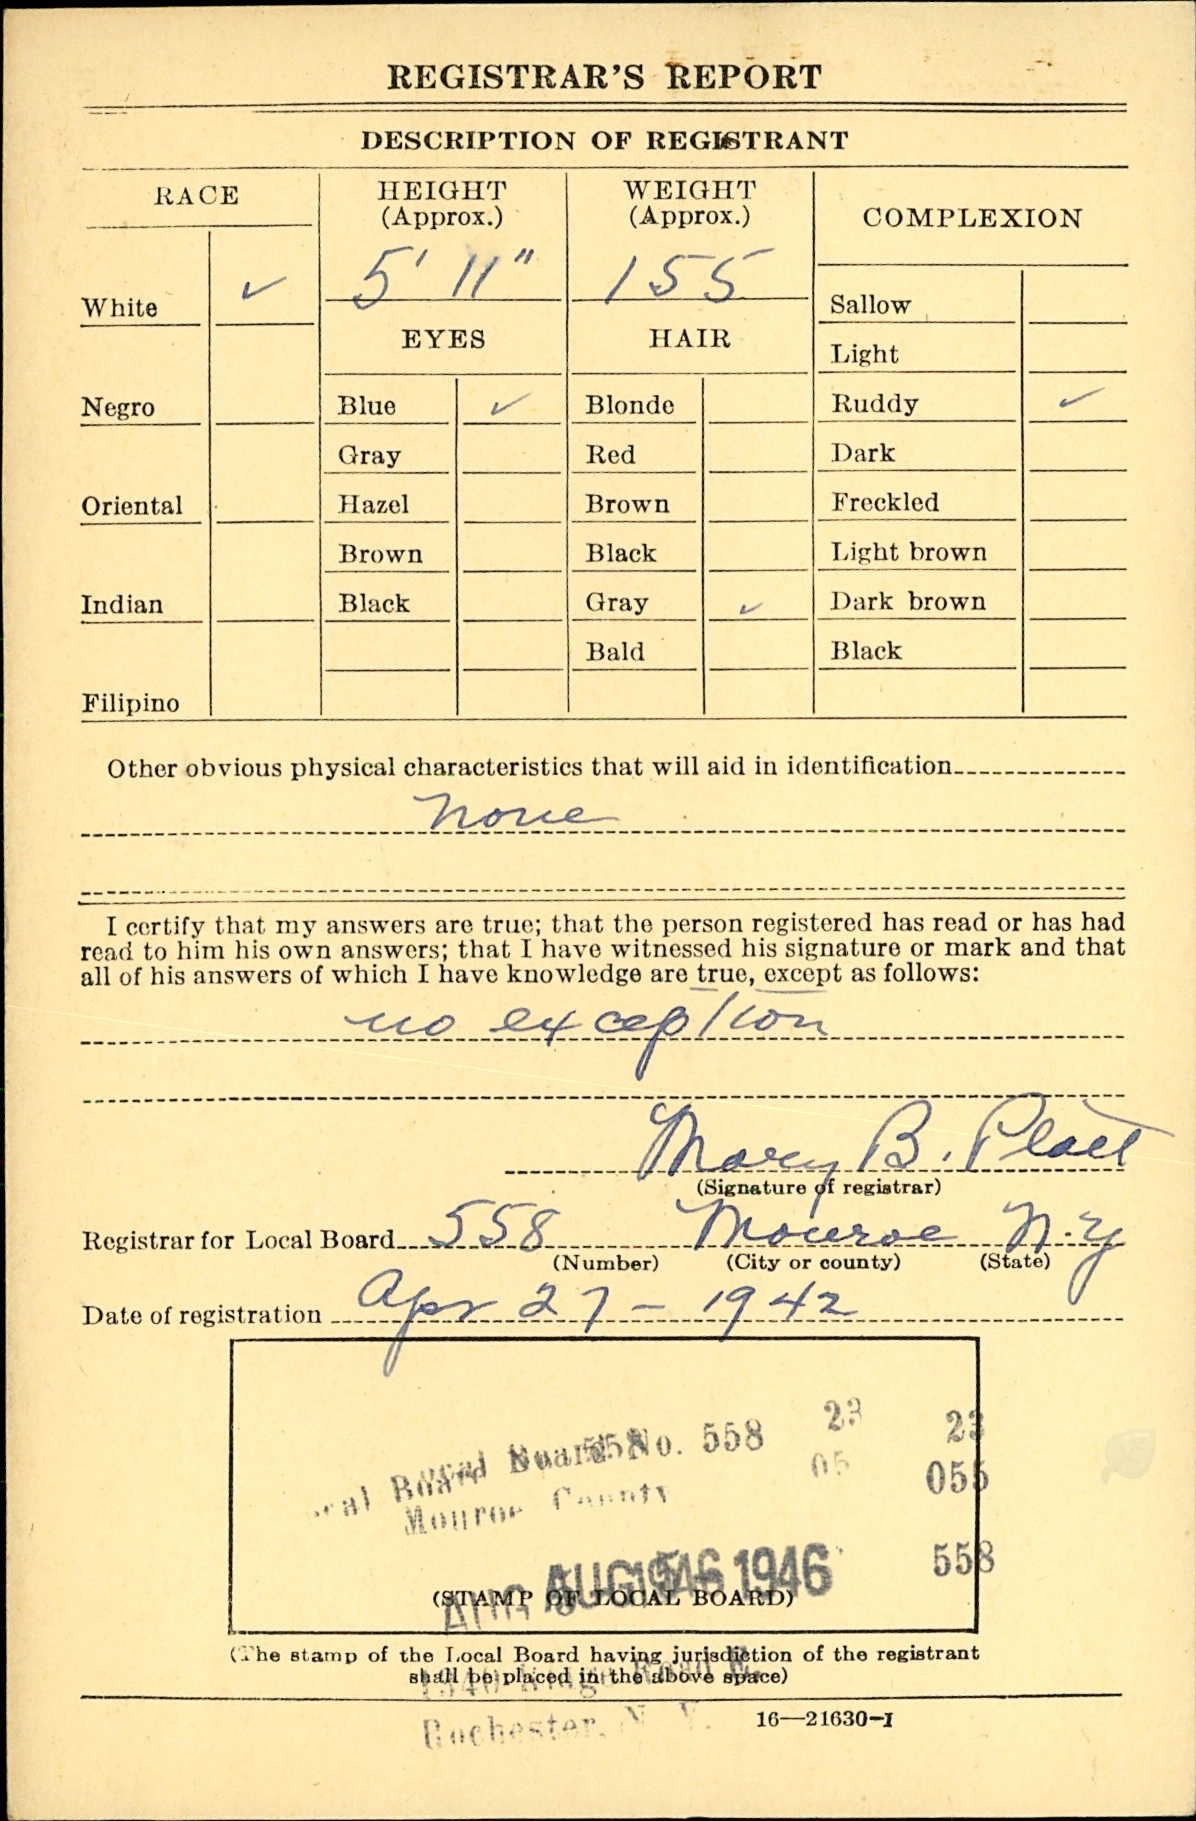 REGISTRAR'S REPORT
DESCRIPTION OF REGISTRANT
RACE
HEIGHT
(Approx.)
WEIGHT
(Approx.)
COMPLEXION
White ✓
5' 11"
155
Sallow
EYES
HAIR
Light
Negro
Blue ✓
Blonde
Ruddy ✓
Gray
Red
Dark
Oriental
Hazel
Brown
Freckled
Brown
Black
Light brown
Indian
Black
Gray ✓
Dark brown
Bald
Black
Filipino
Other obvious physical characteristics that will aid in identification
None
I certify that my answers are true; that the person registered has read or has had
read to him his own answers; that I have witnessed his signature or mark and that
all of his answers of which I have knowledge are true, except as follows:
no exception
Mary B. Platt
(Signature of registrar)
Registrar for Local Board 558 Monroe N.Y
(Number) (City or county) (State)
Date of registration Apr 27 - 1942
Board No. 558
23
23
05
055
Monroe County
558
AUG 1946
(STAMP OF LOCAL BOARD)
(The stamp of the Local Board having jurisdiction of the registrant
shall be placed in the above space)
Rochester, N. Y.
16—21630-1